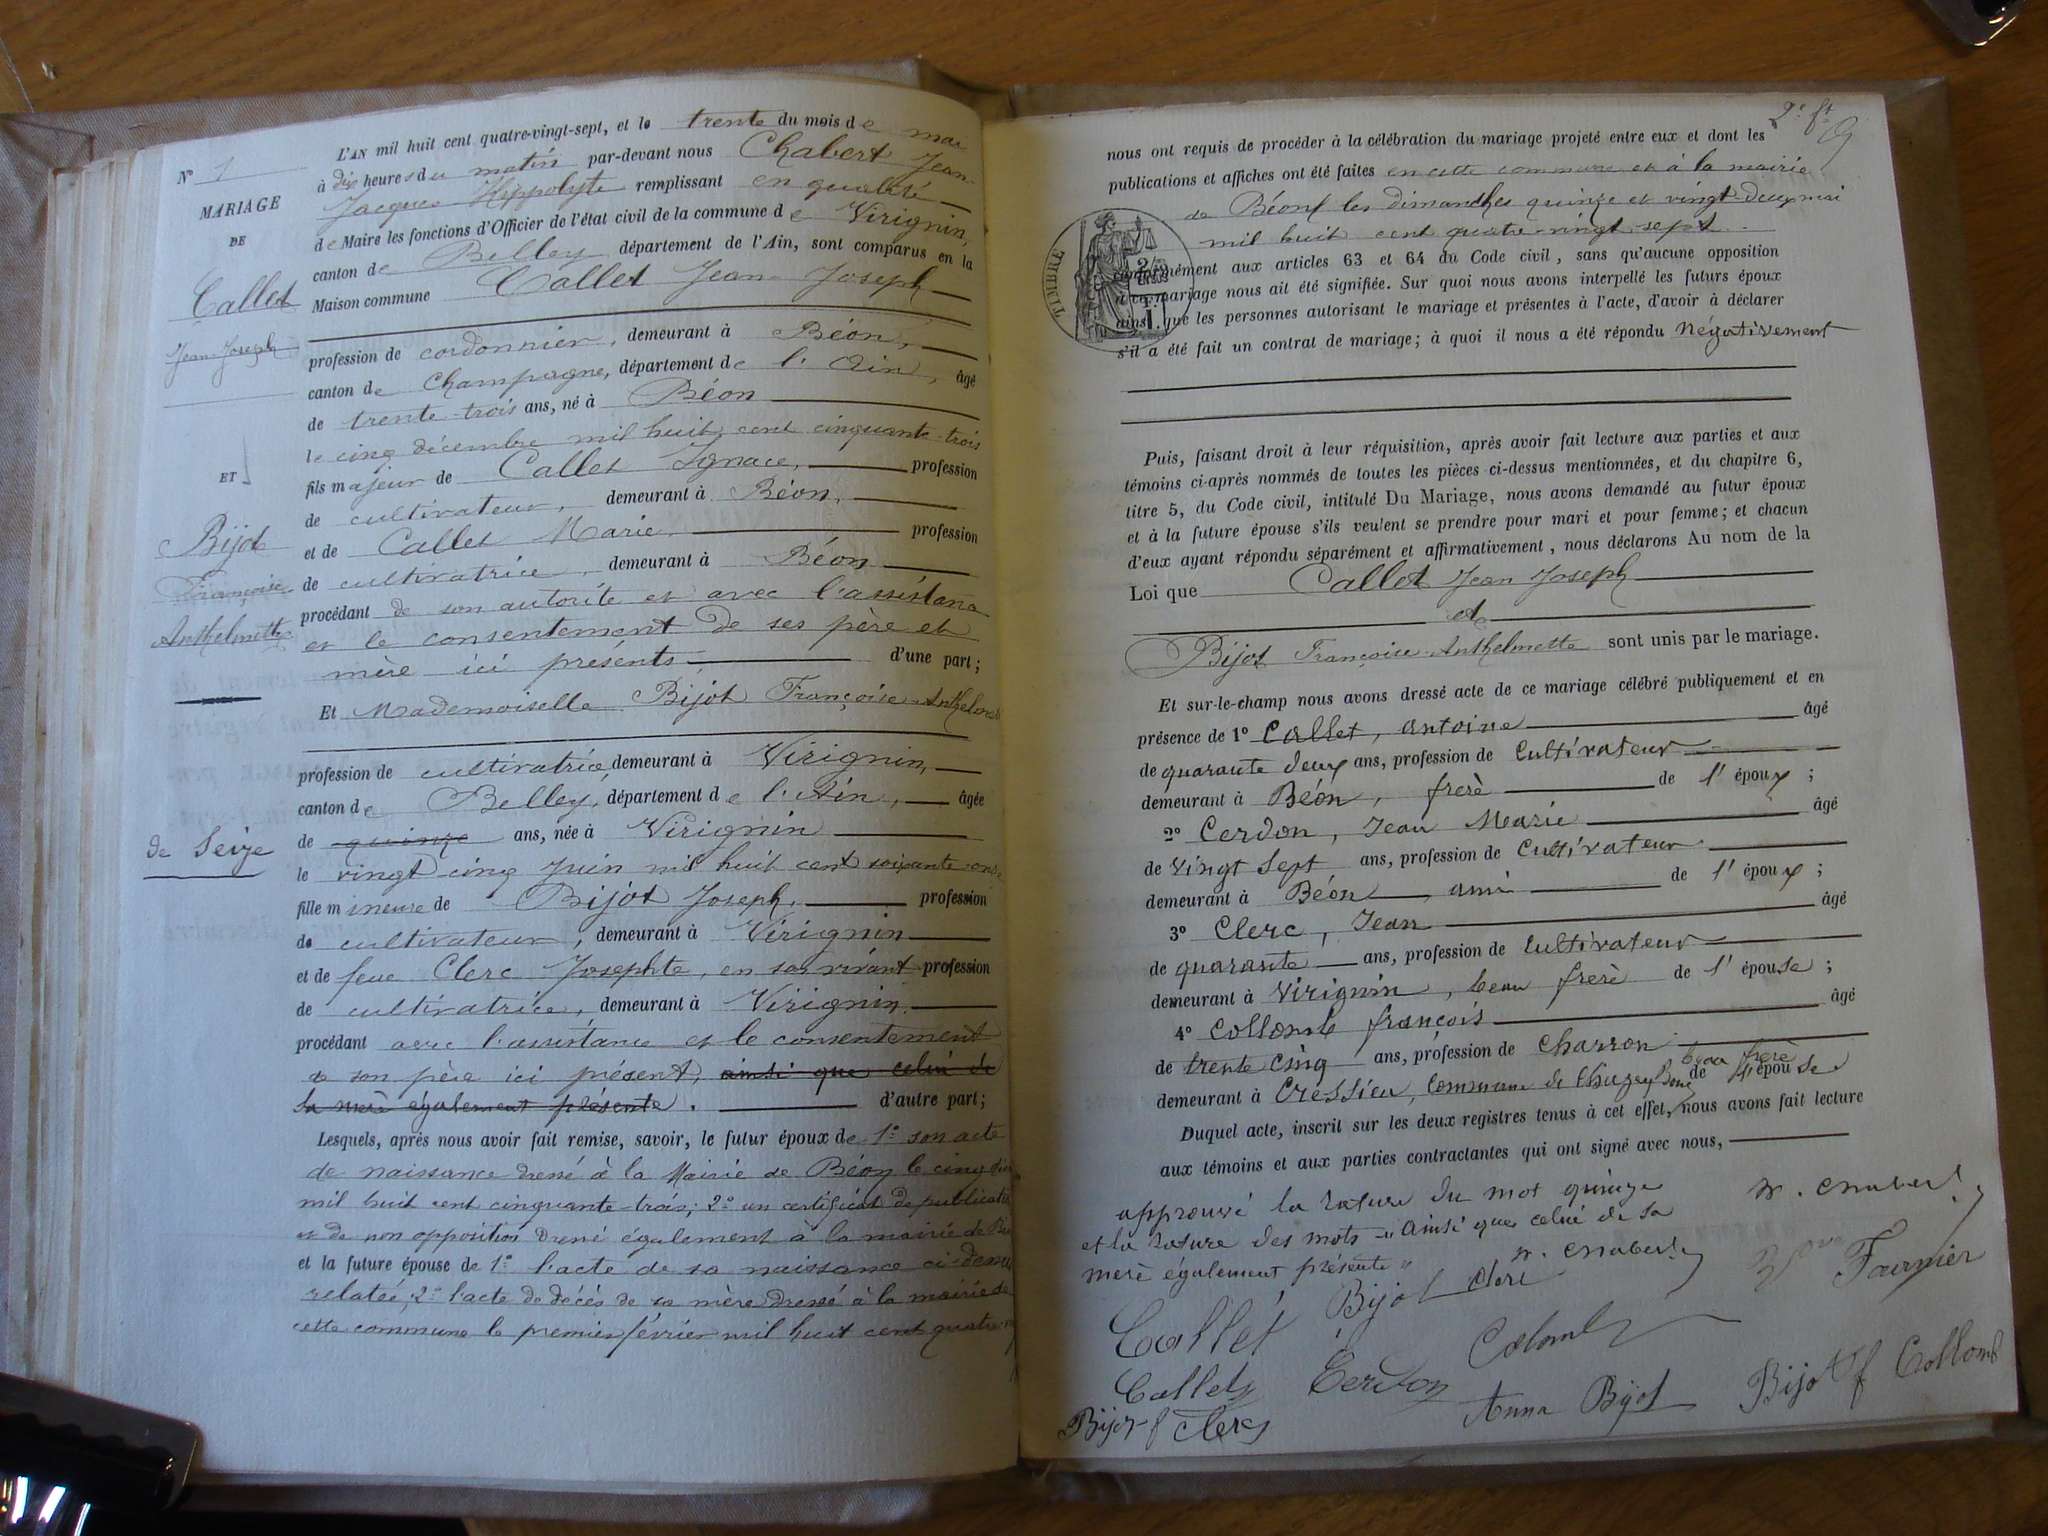 N° 1
MARIAGE
DE
Callet
Jean Joseph
ET
Bijot
Françoise
Anthelmette
de Seize
L'AN mil huit cent quatre-vingt-sept, et le trente du mois de mai
à dix heures du matin par-devant nous Chabert Jean-
Jacques Hippolyte remplissant en qualité
de Maire les fonctions d'Officier de l'état civil de la commune de Virignin,
canton de Belley département de l'Ain, sont comparus en la
Maison commune Callet Jean Joseph
profession de cordonnier, demeurant à Béon,
canton de Champagne, département de l'Ain, âgé
de trente-trois ans, né à Béon
le cinq décembre mil huit cent cinquante-trois
fils majeur de Callet Ignace, profession
de cultivateur, demeurant à Béon,
et de Callet Marie, profession
de cultivatrice, demeurant à Béon
procédant de son autorité et avec l'assistance
et le consentement de ses père et
mère ici présents, d'une part;
Et Mademoiselle Bijot Françoise-Anthelmette
profession de cultivatrice demeurant à Virignin,
canton de Belley, département de l'Ain, âgée
de quinze ans, née à Virignin
le vingt-cinq juin mil huit cent soixante-onze
fille mineure de Bijot Joseph, profession
de cultivateur, demeurant à Virignin
et de feue Clerc Josephte, en son vivant profession
de cultivatrice, demeurant à Virignin,
procédant avec l'assistance et le consentement
de son père ici présent, ainsi que celui de
sa mère également présente. d'autre part;
Lesquels, après nous avoir fait remise, savoir, le futur époux de 1° son acte
de naissance dressé à la Mairie de Béon le cinq
mil huit cent cinquante-trois; 2° un certificat de publication
et de non opposition dressé également à la mairie de
et la future épouse de 1° l'acte de sa naissance ci-dessus
relatée; 2° l'acte de décès de sa mère dressé à la mairie de
cette commune le premier février mil huit cent quatre
2e ft
nous ont requis de procéder à la célébration du mariage projeté entre eux et dont les
publications et affiches ont été faites en cette commune et à la mairie
de Béon les dimanches quinze et vingt-deux mai
mil huit cent quatre-vingt-sept
TIMBRE
conformément aux articles 63 et 64 du Code civil, sans qu'aucune opposition
à ce mariage nous ait été signifiée. Sur quoi nous avons interpellé les futurs époux
ainsi que les personnes autorisant le mariage et présentes à l'acte, d'avoir à déclarer
s'il a été fait un contrat de mariage; à quoi il nous a été répondu négativement
Puis, faisant droit à leur réquisition, après avoir fait lecture aux parties et aux
témoins ci-après nommés de toutes les pièces ci-dessus mentionnées, et du chapitre 6,
titre 5, du Code civil, intitulé Du Mariage, nous avons demandé au futur époux
et à la future épouse s'ils veulent se prendre pour mari et pour femme; et chacun
d'eux ayant répondu séparément et affirmativement, nous déclarons Au nom de la
Loi que Callet Jean Joseph
et
Bijot Françoise-Anthelmette sont unis par le mariage.
Et sur-le-champ nous avons dressé acte de ce mariage célébré publiquement et en
présence de 1° Callet, antoine âgé
de quarante deux ans, profession de cultivateur
demeurant à Béon, frerè de l'époux;
2° Cerdon, Jean Marie âgé
de vingt sept ans, profession de cultivateur
demeurant à Béon ami de l'époux;
3° Clerc, Jean âgé
de quarante ans, profession de cultivateur
demeurant à Virignin, beau frerè de l'épouse;
4° Collomb françois âgé
de trente cinq ans, profession de charron
beau frerè
demeurant à Cressieu, commune de Chazey Bons de l'épouse
Duquel acte, inscrit sur les deux registres tenus à cet effet, nous avons fait lecture
aux témoins et aux parties contractantes qui ont signé avec nous,
approuvé la rature du mot quinze
et la rature des mots « ainsi que celui de sa
merè également présente »
H. Chabert
H. Chabert
Bijot Clerc
Fournier
Callet
Colomb
Callet
Cerdon
Anna Bijot
Bijot f Collomb
Bijot f Clerc